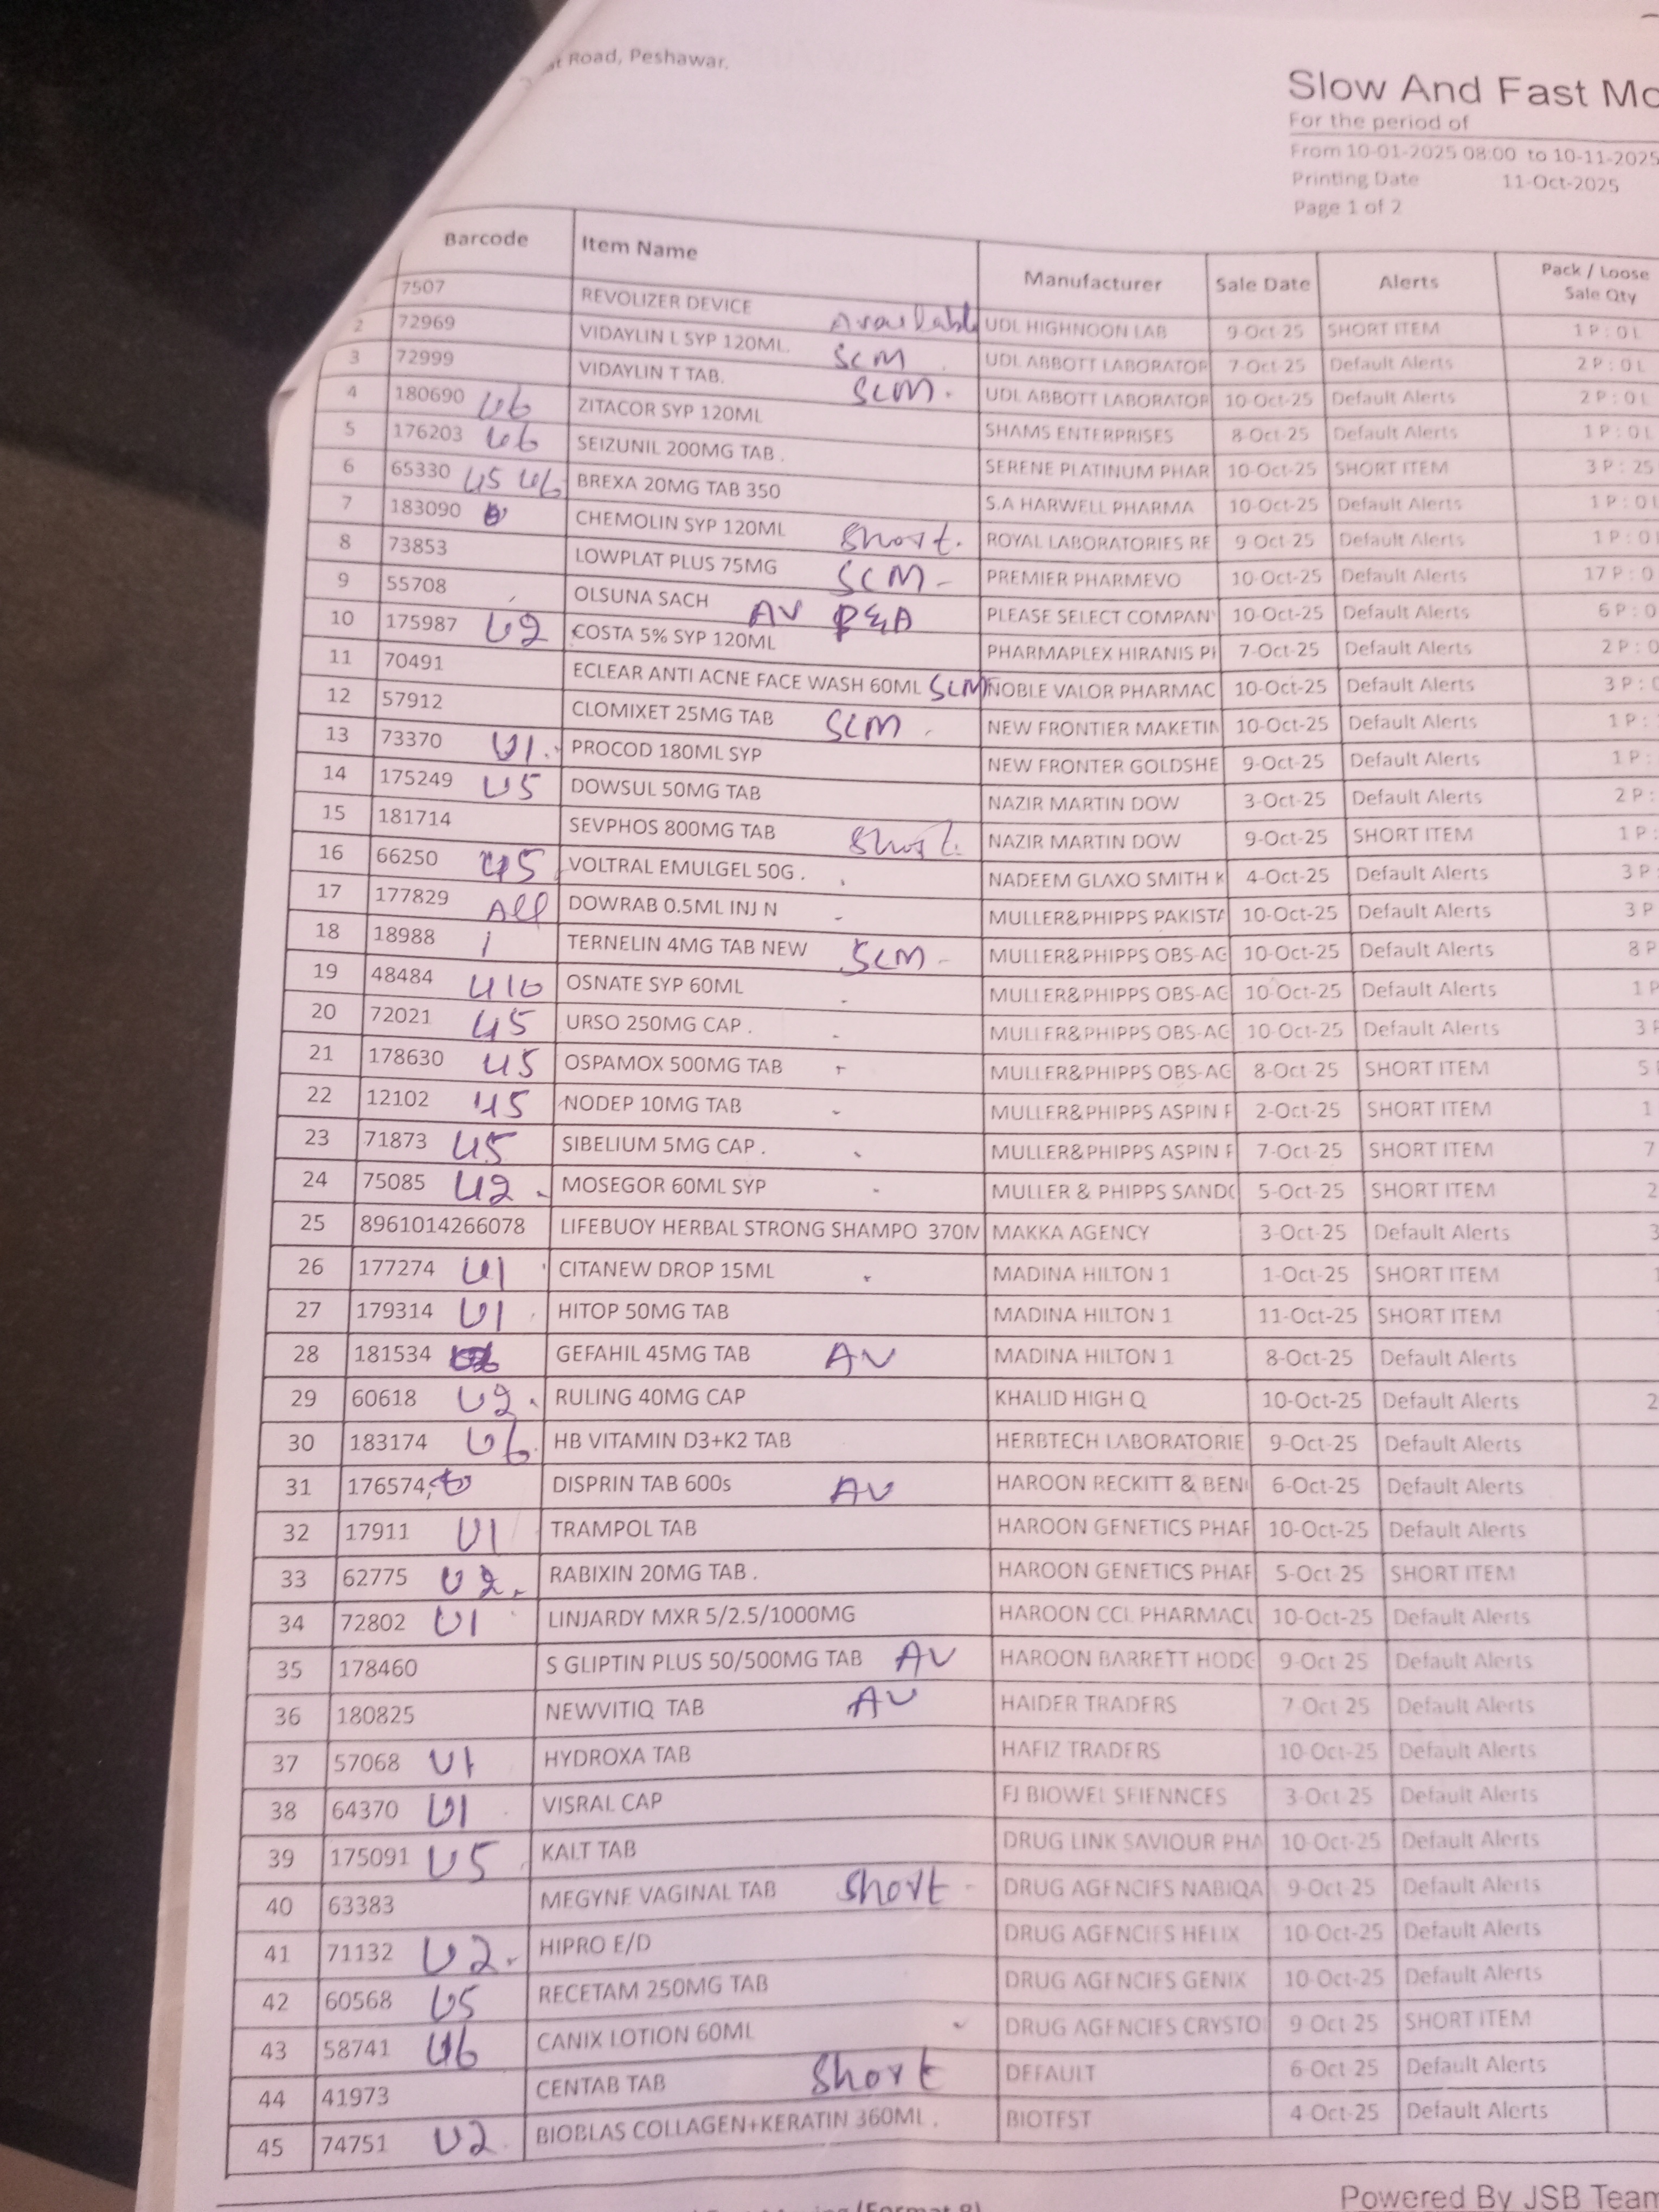 Road, Peshawar.
Slow And Fast Mo
For the period of
From 10-01-2025 08:00 to 10-11-2025
Printing Date 11-Oct-2025
Page 1 of 2
Barcode Item Name Manufacturer Sale Date Alerts Pack / Loose Sale Qty
7507 REVOLIZER DEVICE Available UDL HIGHNOON LAB 9-Oct-25 SHORT ITEM 1 P : 0 L
2 72969 VIDAYLIN L SYP 120ML. SCM UDL ABBOTT LABORATOR 7-Oct-25 Default Alerts 2 P : 0 L
3 72999 VIDAYLIN T TAB. SCM. UDL ABBOTT LABORATOR 10-Oct-25 Default Alerts 2 P : 0 L
4 180690 U6 ZITACOR SYP 120ML SHAMS ENTERPRISES 8-Oct-25 Default Alerts 1 P : 0 L
5 176203 U6 SEIZUNIL 200MG TAB . SERENE PLATINUM PHAR 10-Oct-25 SHORT ITEM 3 P : 25
6 65330 U5 U6 BREXA 20MG TAB 350 S.A HARWELL PHARMA 10-Oct-25 Default Alerts 1 P : 0 L
7 183090 CHEMOLIN SYP 120ML Short. ROYAL LABORATORIES RE 9-Oct-25 Default Alerts 1 P : 0
8 73853 LOWPLAT PLUS 75MG SCM - PREMIER PHARMEVO 10-Oct-25 Default Alerts 17 P : 0
9 55708 OLSUNA SACH AV P&A PLEASE SELECT COMPAN 10-Oct-25 Default Alerts 6 P : 0
10 175987 U2 COSTA 5% SYP 120ML PHARMAPLEX HIRANIS PI 7-Oct-25 Default Alerts 2 P : 0
11 70491 ECLEAR ANTI ACNE FACE WASH 60ML SCM NOBLE VALOR PHARMAC 10-Oct-25 Default Alerts 3 P : 0
12 57912 CLOMIXET 25MG TAB SCM NEW FRONTIER MAKETIN 10-Oct-25 Default Alerts 1 P :
13 73370 U1. PROCOD 180ML SYP NEW FRONTER GOLDSHE 9-Oct-25 Default Alerts 1 P :
14 175249 U5 DOWSUL 50MG TAB NAZIR MARTIN DOW 3-Oct-25 Default Alerts 2 P :
15 181714 SEVPHOS 800MG TAB Short. NAZIR MARTIN DOW 9-Oct-25 SHORT ITEM 1 P :
16 66250 U5 VOLTRAL EMULGEL 50G . NADEEM GLAXO SMITH K 4-Oct-25 Default Alerts 3 P
17 177829 All DOWRAB 0.5ML INJ N - MULLER&PHIPPS PAKISTA 10-Oct-25 Default Alerts 3 P
18 18988 TERNELIN 4MG TAB NEW SCM - MULLER&PHIPPS OBS-AG 10-Oct-25 Default Alerts 8 P
19 48484 U10 OSNATE SYP 60ML - MULLER&PHIPPS OBS-AG 10-Oct-25 Default Alerts 1 P
20 72021 U5 URSO 250MG CAP . - MULLER&PHIPPS OBS-AG 10-Oct-25 Default Alerts 3 P
21 178630 U5 OSPAMOX 500MG TAB - MULLER&PHIPPS OBS-AG 8-Oct-25 SHORT ITEM 5
22 12102 U5 NODEP 10MG TAB - MULLER&PHIPPS ASPIN P 2-Oct-25 SHORT ITEM 1
23 71873 U5 SIBELIUM 5MG CAP . MULLER&PHIPPS ASPIN P 7-Oct-25 SHORT ITEM 7
24 75085 U2 MOSEGOR 60ML SYP - MULLER & PHIPPS SANDO 5-Oct-25 SHORT ITEM 2
25 8961014266078 LIFEBUOY HERBAL STRONG SHAMPO 370M MAKKA AGENCY 3-Oct-25 Default Alerts 3
26 177274 U1 CITANEW DROP 15ML MADINA HILTON 1 1-Oct-25 SHORT ITEM 1
27 179314 U1 HITOP 50MG TAB MADINA HILTON 1 11-Oct-25 SHORT ITEM
28 181534 GEFAHIL 45MG TAB AV MADINA HILTON 1 8-Oct-25 Default Alerts
29 60618 U2. RULING 40MG CAP KHALID HIGH Q 10-Oct-25 Default Alerts 2
30 183174 U6 HB VITAMIN D3+K2 TAB HERBTECH LABORATORIE 9-Oct-25 Default Alerts
31 176574, DISPRIN TAB 600s AV HAROON RECKITT & BEN 6-Oct-25 Default Alerts
32 17911 U1 TRAMPOL TAB HAROON GENETICS PHAR 10-Oct-25 Default Alerts
33 62775 U2. RABIXIN 20MG TAB . HAROON GENETICS PHAR 5-Oct-25 SHORT ITEM
34 72802 U1 LINJARDY MXR 5/2.5/1000MG HAROON CCL PHARMACU 10-Oct-25 Default Alerts
35 178460 S GLIPTIN PLUS 50/500MG TAB AV HAROON BARRETT HODG 9-Oct-25 Default Alerts
36 180825 NEWVITIQ TAB AV HAIDER TRADERS 7-Oct-25 Default Alerts
37 57068 U1 HYDROXA TAB HAFIZ TRADERS 10-Oct-25 Default Alerts
38 64370 U1 VISRAL CAP FJ BIOWEL SEIENNCES 3-Oct-25 Default Alerts
39 175091 U5 KALT TAB DRUG LINK SAVIOUR PHA 10-Oct-25 Default Alerts
40 63383 MEGYNE VAGINAL TAB Short - DRUG AGENCIES NABIQA 9-Oct-25 Default Alerts
41 71132 U2. HIPRO E/D DRUG AGENCIES HELIX 10-Oct-25 Default Alerts
42 60568 U5 RECETAM 250MG TAB DRUG AGENCIES GENIX 10-Oct-25 Default Alerts
43 58741 U6 CANIX LOTION 60ML DRUG AGENCIES CRYSTO 9-Oct-25 SHORT ITEM
44 41973 CENTAB TAB Short DEFAULT 6-Oct-25 Default Alerts
45 74751 U2 BIOBLAS COLLAGEN+KERATIN 360ML . BIOTEST 4-Oct-25 Default Alerts
Powered By JSB Team